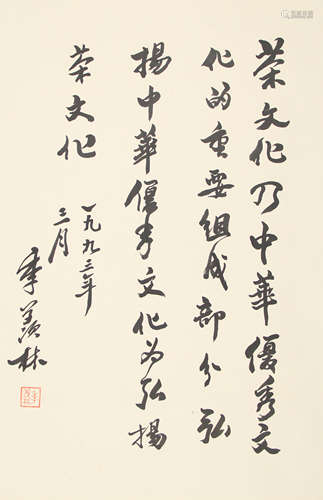 茶文化乃中華優秀文
化的重要組成部分弘
揚中華優秀文化为弘揚
茶文化
一九九三年
三月
季羨林